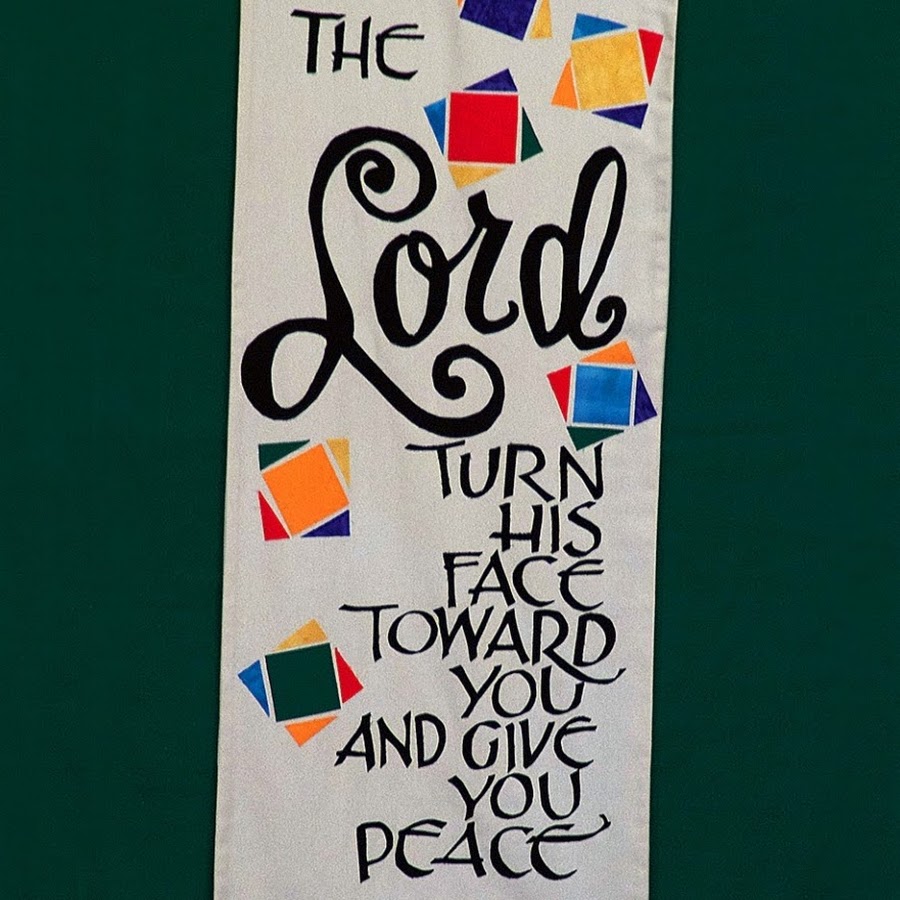 THE
Lord
TURN
HIS
FACE
TOWARD
YOU
AND GIVE
YOU
PEACE